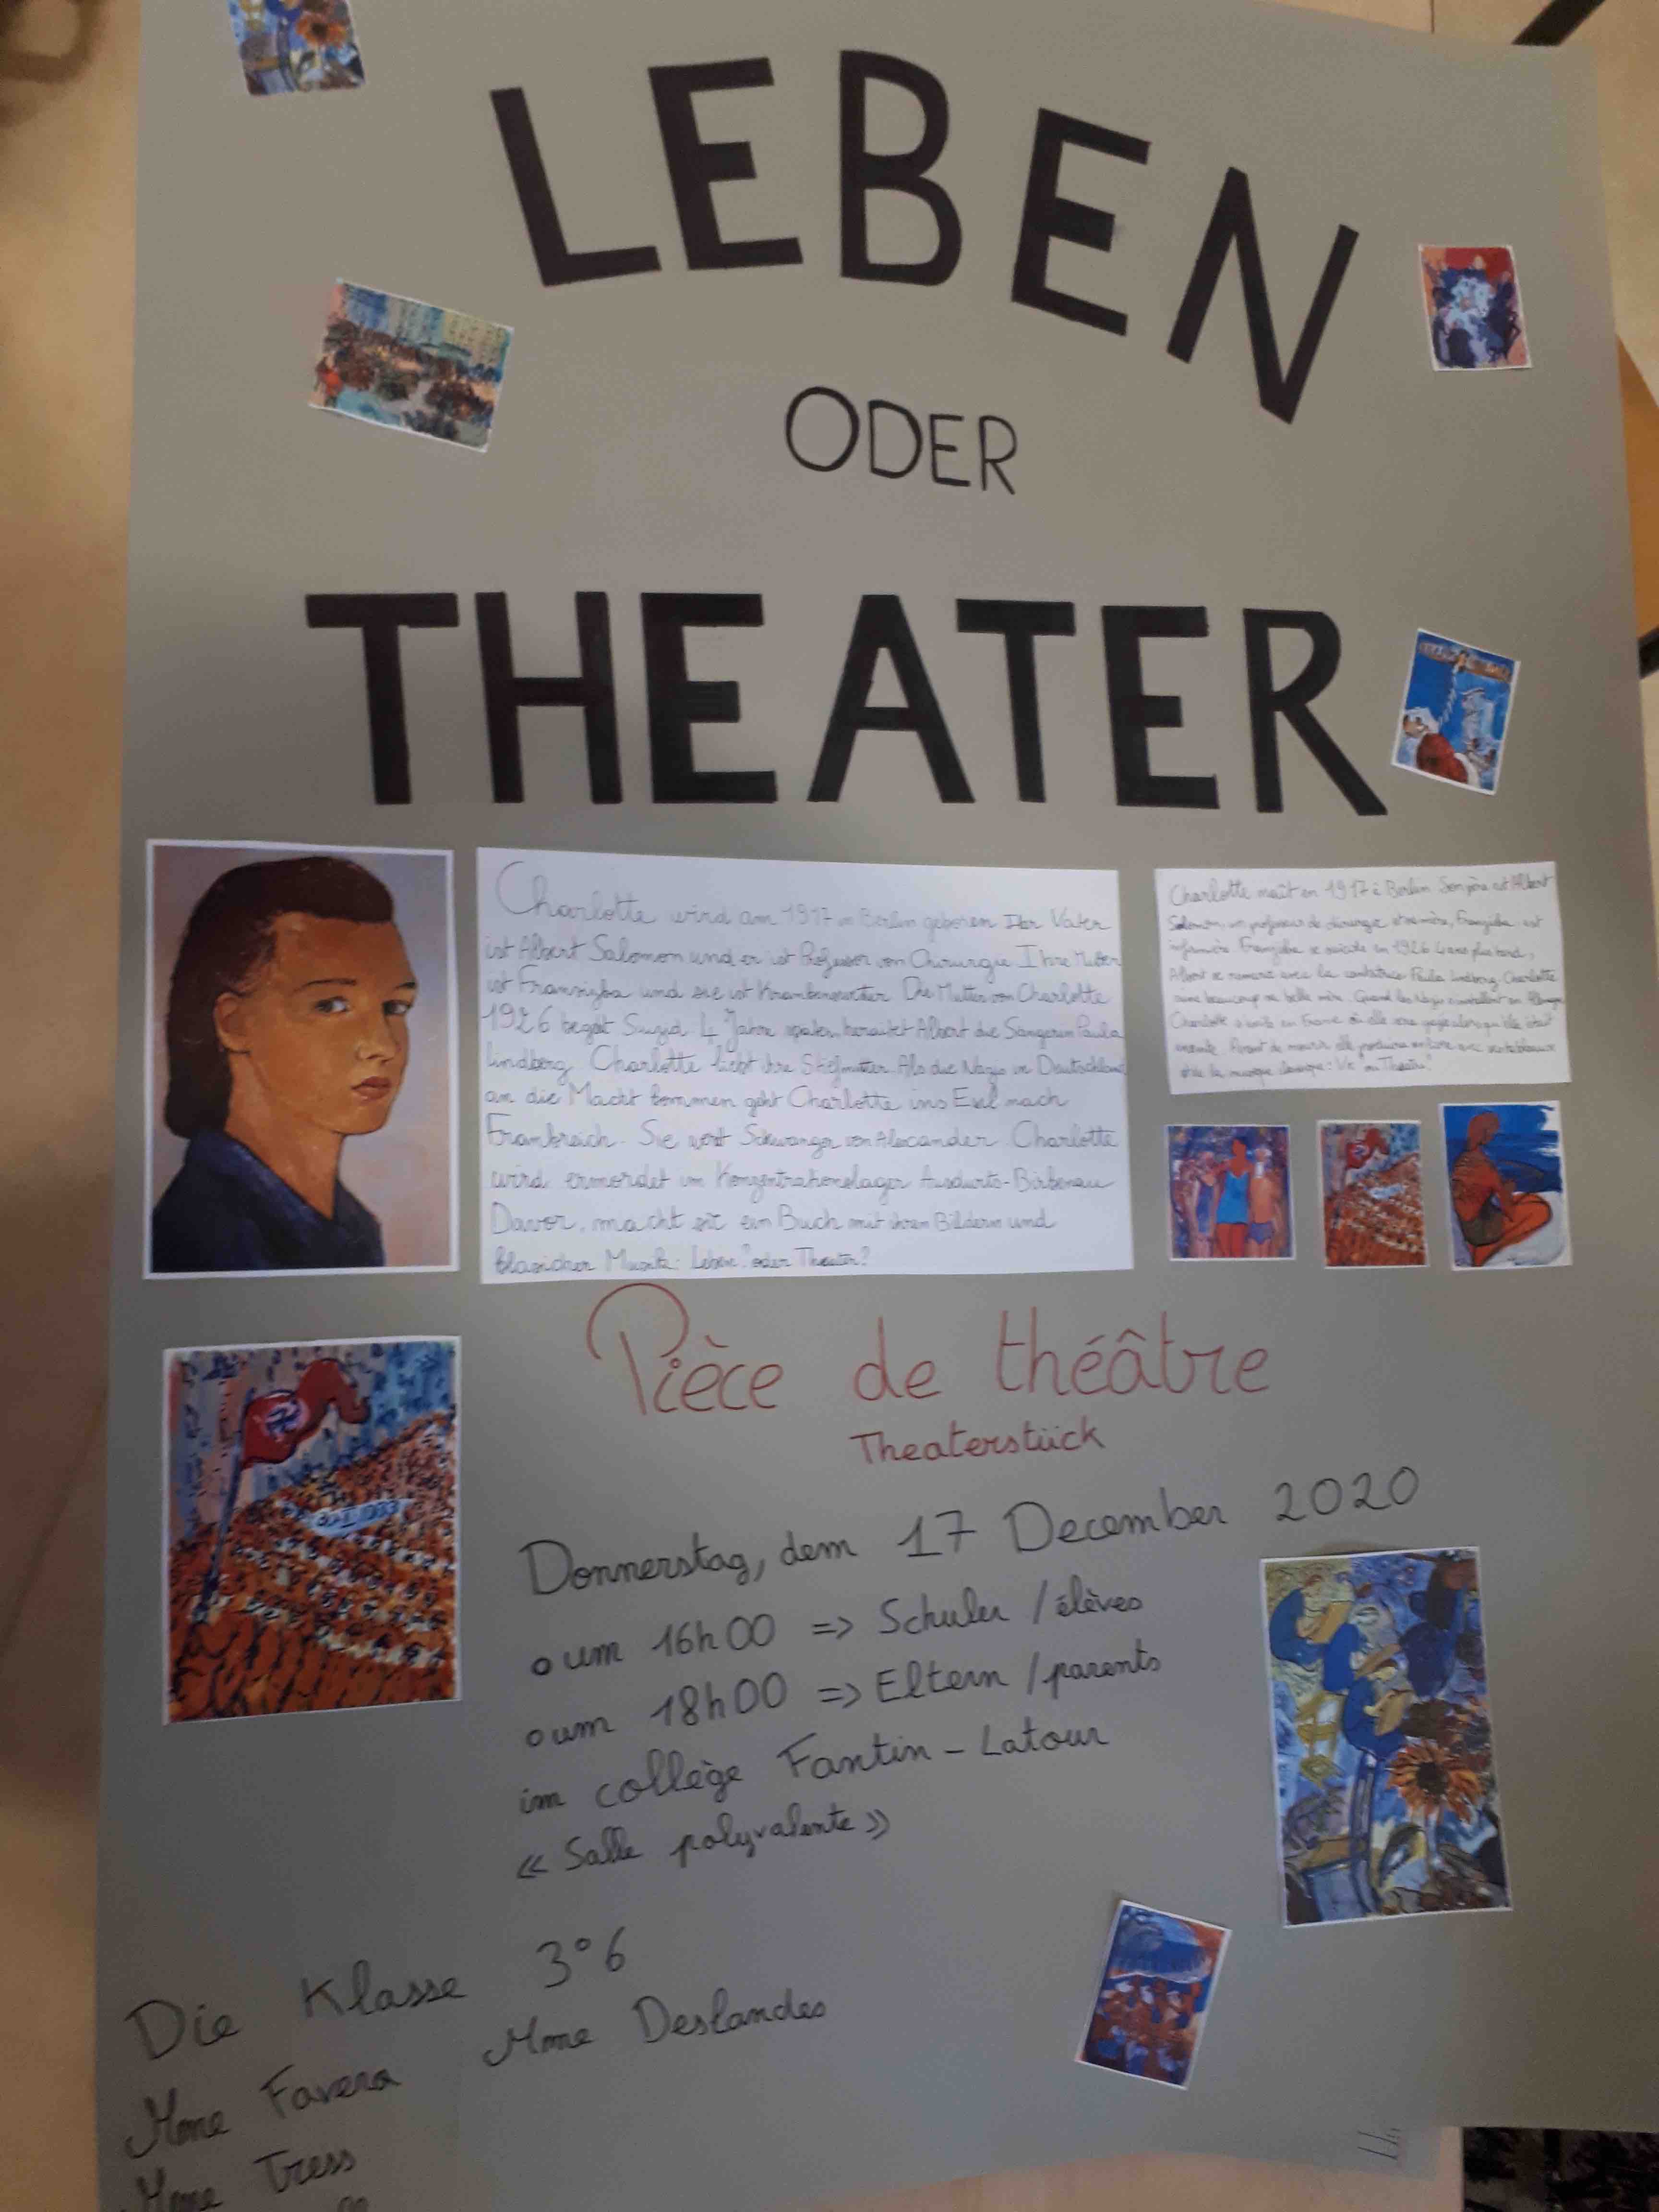 LEBEN
ODER
THEATER
Charlotte wird am 1917 in Berlin geboren Ihr Vater
ist Albert Salomon und er ist Professor von Chirurgie Ihre
ist und sie ist Die Mutter von Charlotte
1926 begeht Suizid 4 Jahre später heiratet Albert die Sängerin Paula
Lindberg. Charlotte liebt ihre Stiefmutter. Als die Nazis in Deutschland
an die Macht kommen geht Charlotte ins Exil nach
Frankreich. Sie Schwanger von Alexander Charlotte
wird ermordet im Konzentrationslager
Davor, macht sie ein Buch mit ihren Bildern und
Musik: Leben? oder Theater?
Charlotte naît en 1917 à Berlin Son père est Albert
Salomon, un professeur de chirurgie et sa mère, est
infirmière se suicide en 1926 4 ans plus tard,
Albert se remarie avec la cantatrice Paula Lindberg. Charlotte
aime beaucoup sa belle mère. Quand les Nazis en
Charlotte en France où elle sera alors qu'elle était
enceinte. Avant de mourir elle produira un livre avec
et de la musique classique: Vie ou Théâtre?
Pièce de théâtre
Theaterstück
Donnerstag, dem 17 December 2020
o um 16h00 => Schuler / élèves
o um 18h00 => Eltern / parents
im collège Fantin - Latour
« Salle polyvalente »
Die Klasse 3°6
Mme Favera Mme Deslandes
Mme Tress